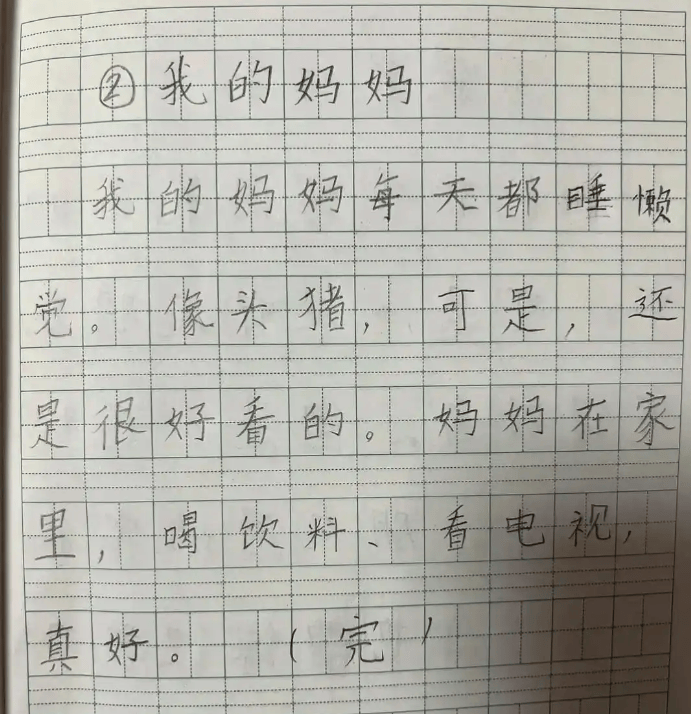 ②我的妈妈
我的妈妈每天都睡懒
觉。像头猪，可是，还
是很好看的。妈妈在家
里，喝饮料、看电视，
真好。（完）